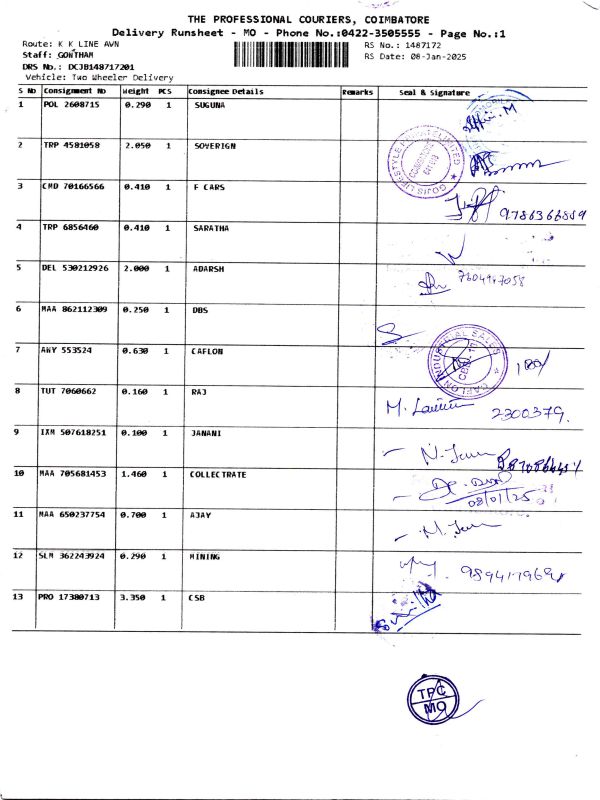 THE PROFESSIONAL COURIERS, COIMBATORE
Delivery Runsheet - MO - Phone No.:0422-3505555 - Page No.:1
Route: K K LINE AVN
Staff: GOWTHAM
DRS No.: DCJB148717201
Vehicle: Two Wheeler Delivery
RS No.: 1487172
RS Date: 08-Jan-2025
S No Consignment No Weight PCS Consignee Details Remarks Seal & Signature
1 POL 2608715 0.290 1 SUGUNA
2 TRP 4581058 2.050 1 SOVERIGN
3 CMD 70166566 0.410 1 F CARS
4 TRP 6856460 0.410 1 SARATHA
5 DEL 530212926 2.000 1 ADARSH
6 MAA 862112309 0.250 1 DBS
7 ANY 553524 0.630 1 CAFLON
CAFLON INDUSTRIAL SALES
8 TUT 7060662 0.160 1 RAJ
2300379.
9 IXM 507618251 0.100 1 JANANI
10 MAA 705681453 1.460 1 COLLECTRATE
08/01/25
11 MAA 650237754 0.700 1 AJAY
12 SLM 362243924 0.290 1 MINING
13 PRO 17380713 3.350 1 CSB
TPC
MO